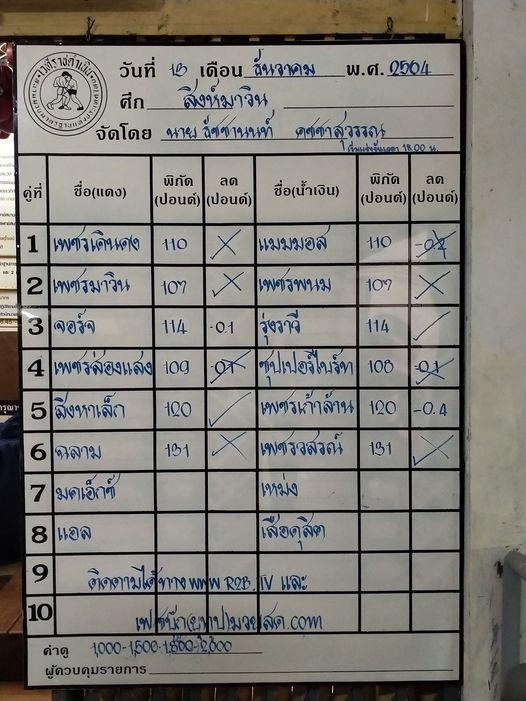 เวทีราชดำเนิน
วันที่ 13 เดือน ธันวาคม พ.ศ. 2564
ศึก สิงห์มาวิน
จัดโดย นาย ธัชชานนท์ คชชาสุวรรณ
18.00 น.
คู่ที่ ชื่อ(แดง) พิกัด (ปอนด์) ลด (ปอนด์) ชื่อ(น้ำเงิน) พิกัด (ปอนด์) ลด (ปอนด์)
1 110 แมมมอส 110
2 เพชรมาวิน 107 เพชรพนม 107
3 จอร์จ 114 -0.1 รุ่งราวี 114
4 เพชรส่องแสง 109 -0.1 ซุปเปอร์ไบร์ท 108 -0.1
5 สิงหาเล็ก 120 เพชรเก้าล้าน 120 -0.4
6 ฉลาม 131 131
7 มดเอ็กซ์ เหม่ง
8 แอล เสือดุสิต
9 ติดตามได้ทาง www R2B. TV และ
10 มวยสด.com
ค่าดู 1,000-1,500-1,800-2,000
ผู้ควบคุมรายการ